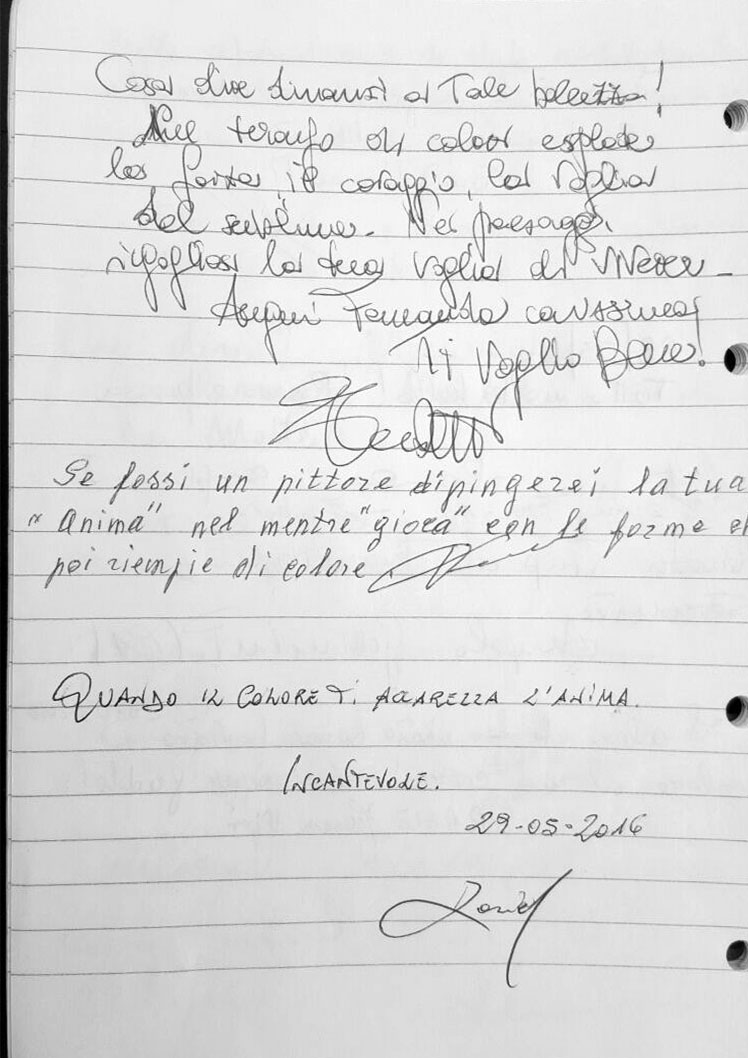 Cosa dire dinanzi a Tale bellezza!
Nel trionfo di colori esplode
la forza, il coraggio, la voglia
del sublime. Nei paesaggi
rigogliosi la tua voglia di vivere -
Auguri Fernanda carissima!
Ti Voglio Bene!
Se fossi un pittore dipingerei la tua
"anima" nel mentre "gioca" con le forme e
poi riempie di colore
QUANDO IL COLORE TI ACCAREZZA L'ANIMA.
INCANTEVOLE.
29-05-2016